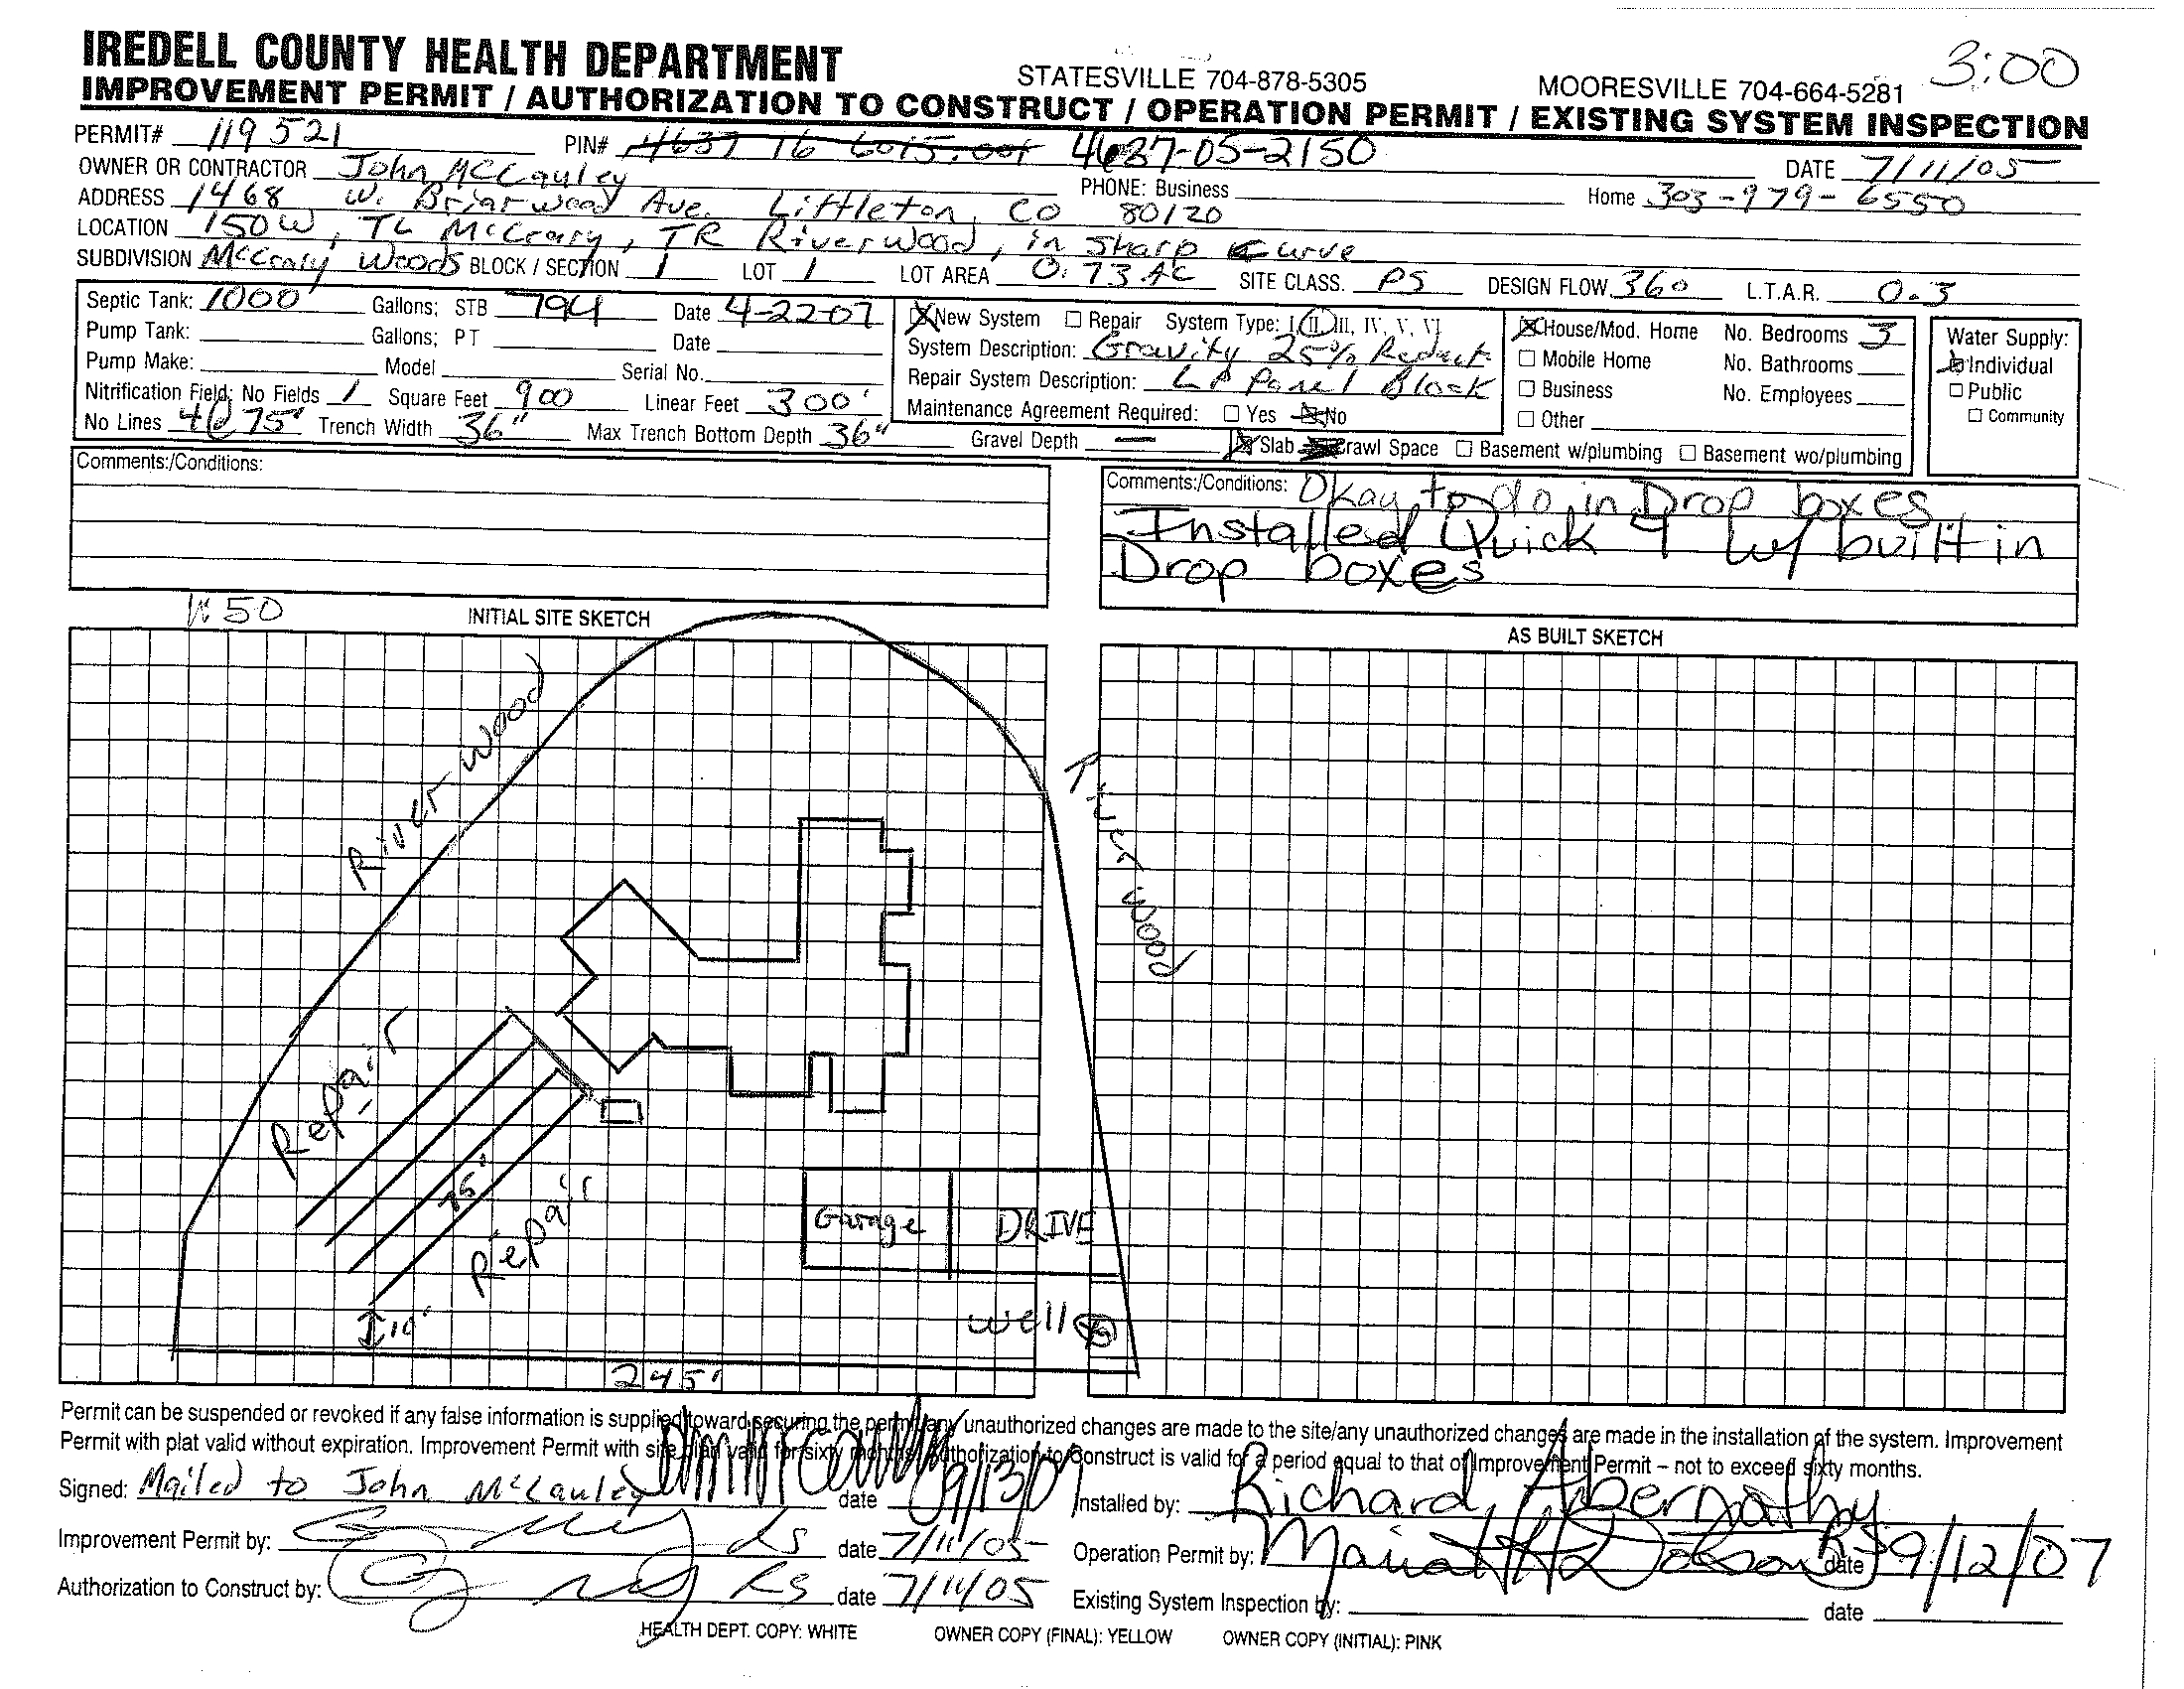 3:00
IREDELL COUNTY HEALTH DEPARTMENT STATESVILLE 704-878-5305 MOORESVILLE 704-664-5281
IMPROVEMENT PERMIT / AUTHORIZATION TO CONSTRUCT / OPERATION PERMIT / EXISTING SYSTEM INSPECTION
PERMIT# 119521 PIN# 4637-05-2150 DATE 7/11/05
OWNER OR CONTRACTOR John McCauley PHONE: Business Home 303-979-6550
ADDRESS 1468 W. Briarwood Ave. Littleton, CO 80120
LOCATION 150W, TL McCrary, TR Riverwood, in sharp curve
SUBDIVISION McCrary Woods BLOCK / SECTION 1 LOT 1 LOT AREA 0.73 AC SITE CLASS. PS DESIGN FLOW 360 L.T.A.R. 0.3
Septic Tank: 1000 Gallons; STB 794 Date 4-22-07
Pump Tank: Gallons; PT Date
Pump Make: Model Serial No.
Nitrification Field: No Fields 1 Square Feet 900 Linear Feet 300'
No Lines 4@75' Trench Width 36" Max Trench Bottom Depth 36" Gravel Depth —
New System Repair System Type: I, II, III, IV, V, VI
System Description: Gravity 25% Reduct
Repair System Description: LP Panel Block
Maintenance Agreement Required: Yes No
House/Mod. Home No. Bedrooms 3
Mobile Home No. Bathrooms
Business No. Employees
Other
Slab Crawl Space Basement w/plumbing Basement wo/plumbing
Water Supply:
Individual
Public
Community
Comments:/Conditions:
Comments:/Conditions: Okay to do in Drop boxes
Installed Quick 4 w/ built in
Drop boxes
50
INITIAL SITE SKETCH
AS BUILT SKETCH
River wood
River wood
Repair
75'
Repair
Garage
DRIVE
10'
well
245'
Permit can be suspended or revoked if any false information is supplied toward securing the permit/any unauthorized changes are made to the site/any unauthorized changes are made in the installation of the system. Improvement
Permit with plat valid without expiration. Improvement Permit with site plan valid for sixty months. Authorization to Construct is valid for a period equal to that of Improvement Permit – not to exceed sixty months.
Signed: Mailed to John McCauley date 9/13/07 Installed by: Richard Abernathy
Improvement Permit by: RS date 7/11/05 Operation Permit by: RS date 9/12/07
Authorization to Construct by: RS date 7/11/05 Existing System Inspection by: date
HEALTH DEPT. COPY: WHITE OWNER COPY (FINAL): YELLOW OWNER COPY (INITIAL): PINK